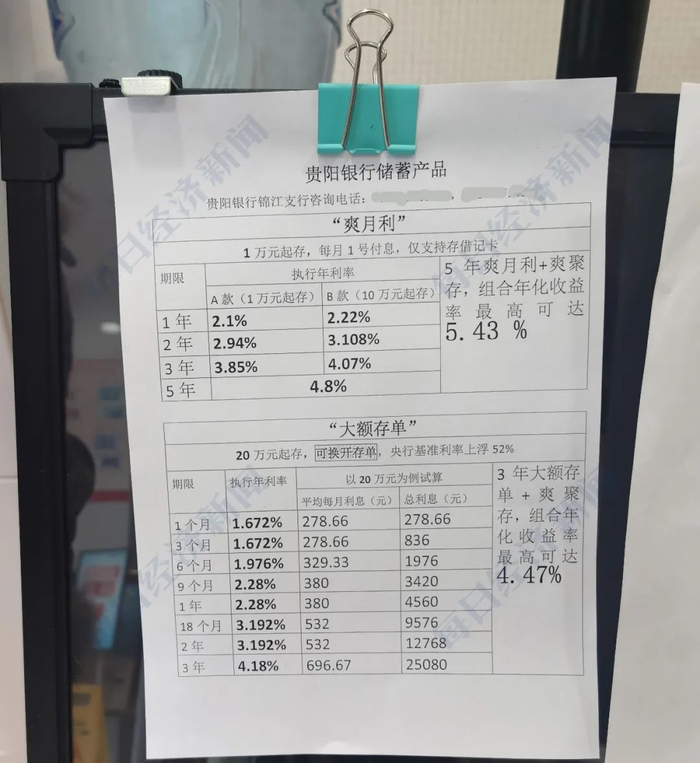 贵阳银行储蓄产品
贵阳银行锦江支行咨询电话：
“爽月利”
1万元起存，每月1号付息，仅支持存借记卡
期限 执行年利率
A款（1万元起存） B款（10万元起存）
1年 2.1% 2.22%
2年 2.94% 3.108%
3年 3.85% 4.07%
5年 4.8%
5年爽月利+爽聚
存，组合年化收益
率最高可达
5.43 %
“大额存单”
20万元起存，可换开存单，央行基准利率上浮52%
期限 执行年利率 以20万元为例试算
平均每月利息（元） 总利息（元）
1个月 1.672% 278.66 278.66
3个月 1.672% 278.66 836
6个月 1.976% 329.33 1976
9个月 2.28% 380 3420
1年 2.28% 380 4560
18个月 3.192% 532 9576
2年 3.192% 532 12768
3年 4.18% 696.67 25080
3年大额存
单+爽聚
存，组合年
化收益率
最高可达
4.47%
每日经济新闻
每日经济新闻
每日经济新闻
每日经济新闻